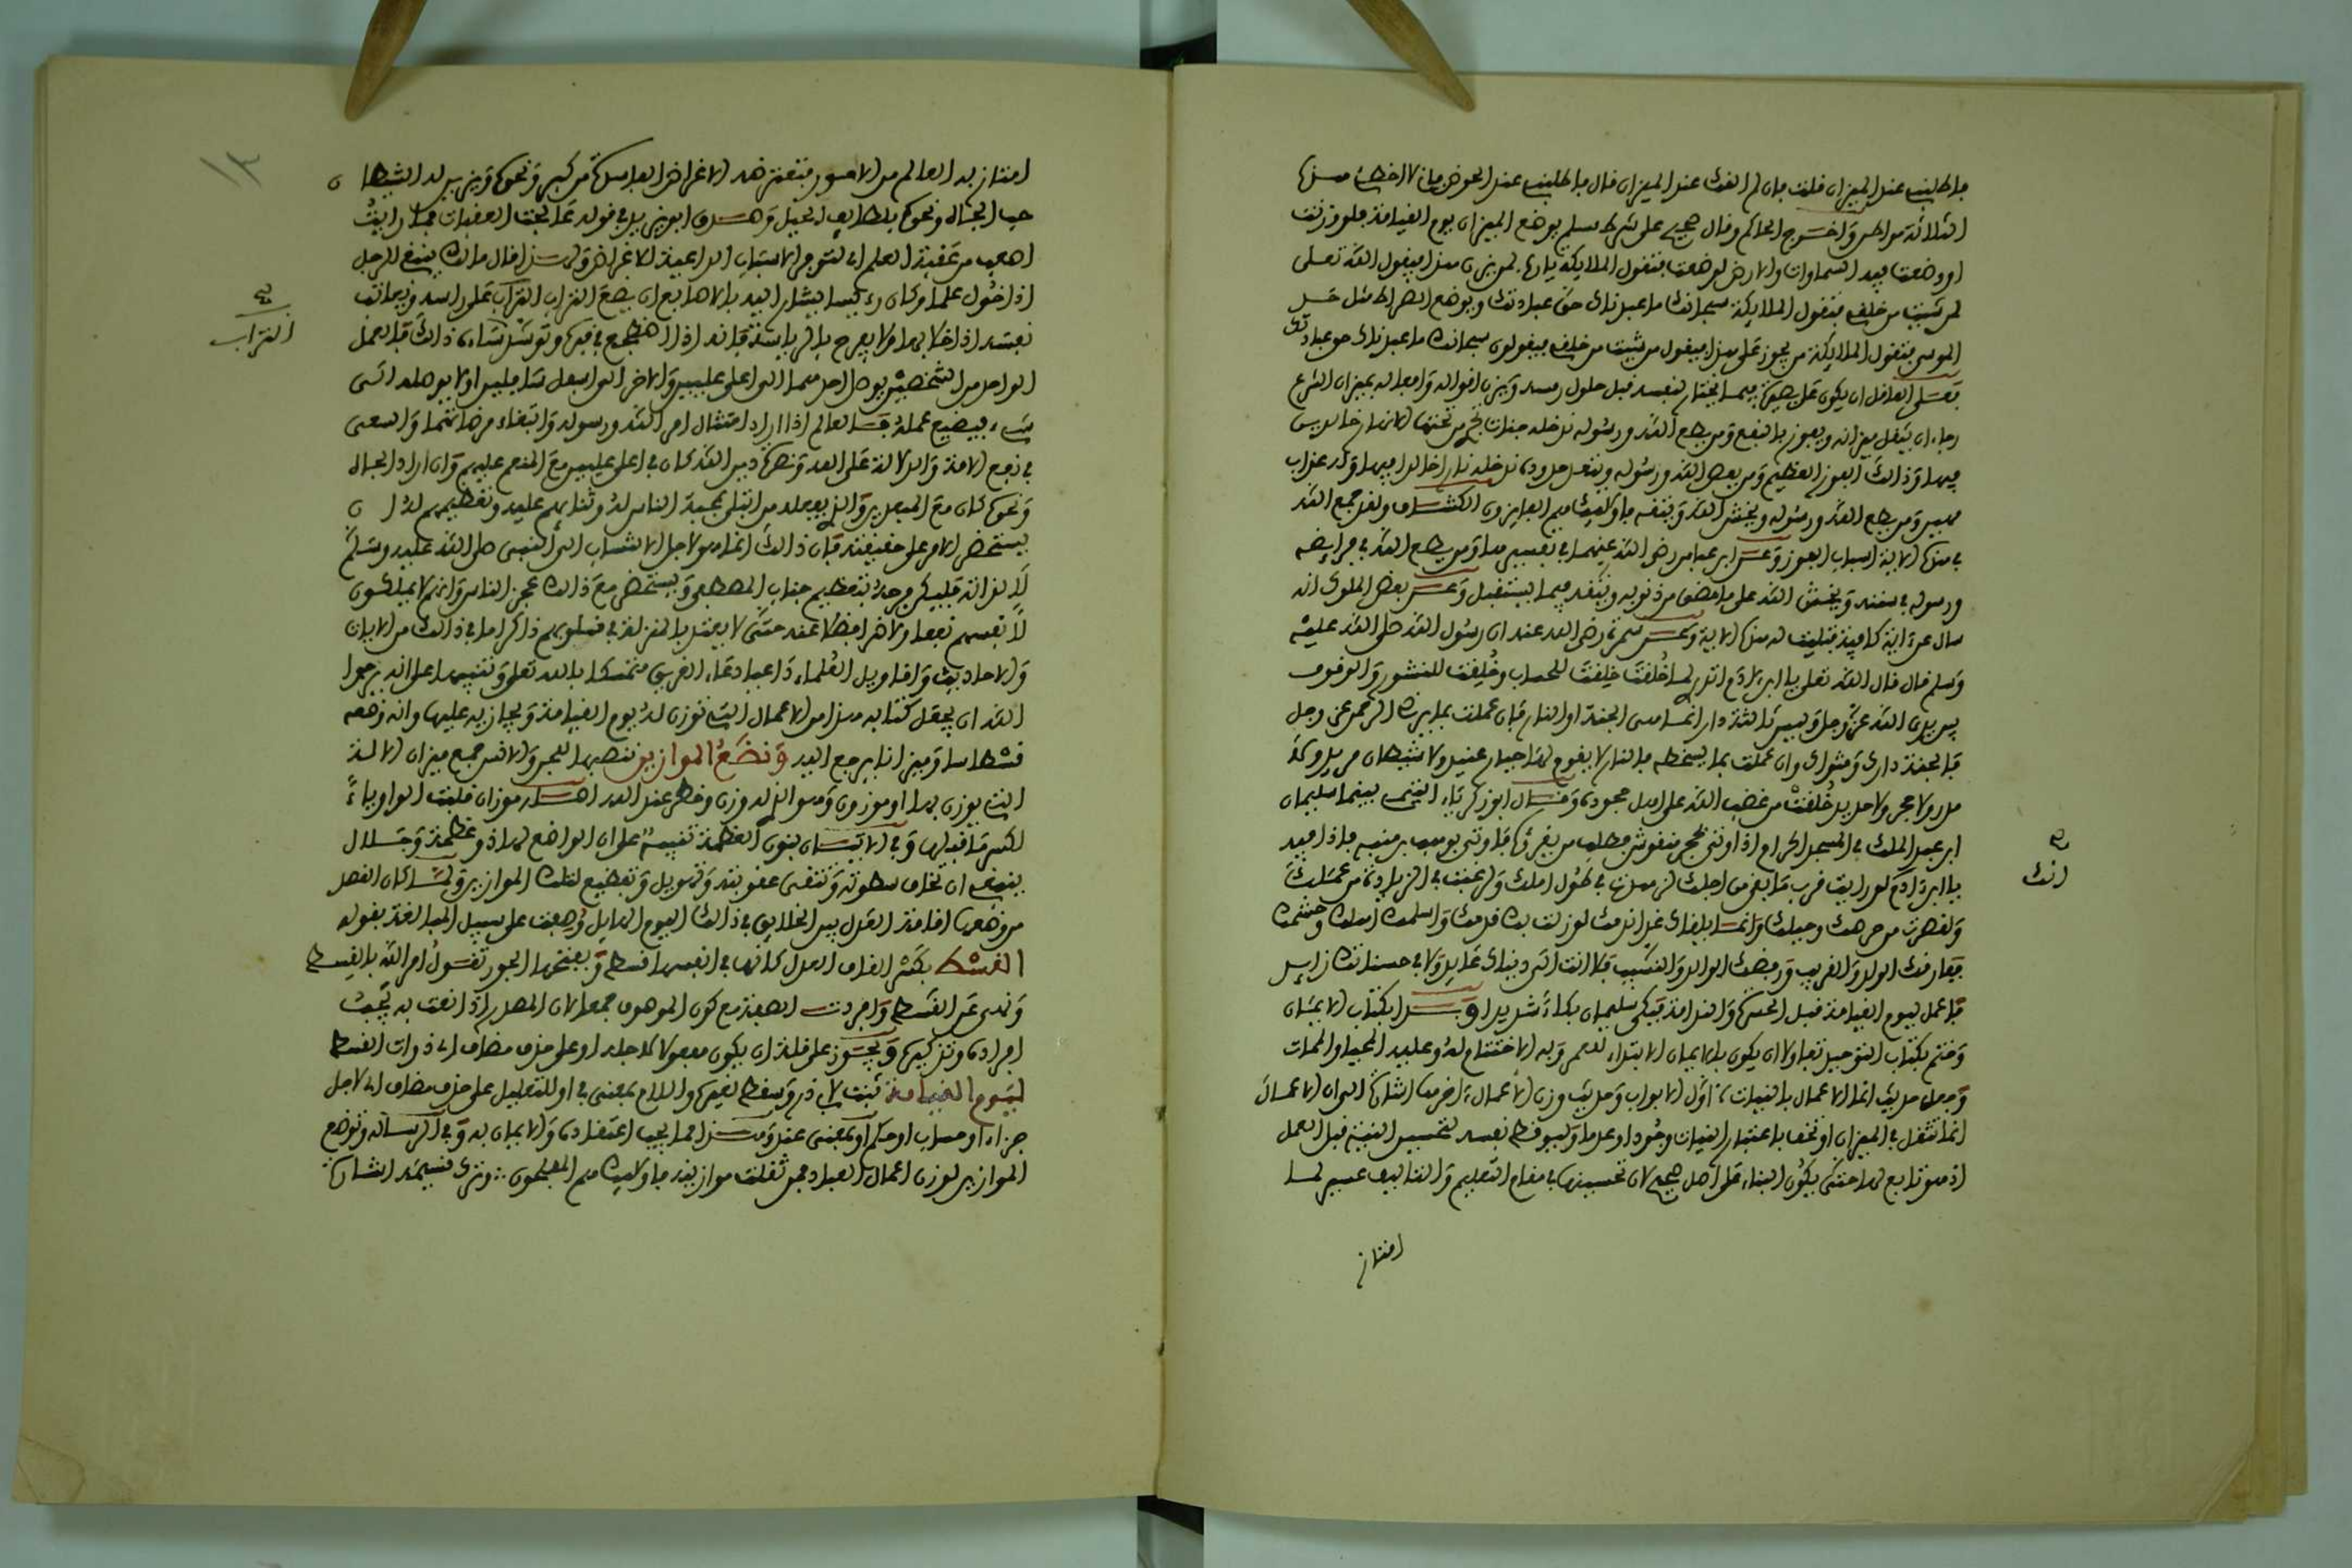 فاطلبني عند الميزان قلت فان لم القك عند الميزان قال فاطلبني عند الحوض فاني لا اخطئ هذه
الثلاثة مواطن واخرج الحاكم وقال صحيح على شرط مسلم يوضع الميزان يوم القيامة فلو وزنت
او وضعت فيه السماوات والارض لوضعت فتقول الملايكة يا رب لمن يزن هذا فيقول الله تعلى
لمن شيت من خلقي فتقول الملايكة سبحانك ما عبدناك حق عبادتك ويوضع الصراط مثل حد
الموسى فتقول الملايكة من يجوز على هذا فيقول من شيت من خلقي فيقولون سبحانك ما عبدناك حق عبادتك
فعلى العاقل ان يكون على بصيرة فيما يختار لنفسه قبل حلول رمسه ويزن اقواله وافعاله بميزان الشرع
رجاء ان يثقل ميزانه ويفوز بالنفع ومن يطع الله ورسوله ندخله جنات تجري من تحتها الانهار خالدين
فيها وذالك الفوز العظيم ومن يعص الله ورسوله ويتعد حدوده ندخله نارا خالدا فيها وله عذاب
مهين ومن يطع الله ورسوله ويخش الله ويتقه فاولايك هم الفايزون الكشاف ولقد جمع الله
في هذه الاية اسباب الفوز وعن ابن عباس رضي الله عنهما في تفسيرها ومن يطع الله في فرايضه
ورسوله في سننه ويخش الله على ما مضى من ذنوبه ويتقه فيما يستقبل وعن بعض الملوك انه
سال عن اية كافية فتليت له هذه الاية وعن سمرة رضي الله عنه ان رسول الله صلى الله عليه
وسلم قال قال الله تعلى يا ابن ءادم اتدري لما خلقت خلقت للحساب وخلقت للنشور والوقوف
بين يدي الله عز وجل وليس ثالثة دار انما هي الجنة او النار فان عملت بما يرضي الرحمن عز وجل
فالجنة دارك ومثواك وان عملت بما يسخطه فالنار لا يقوم لها جبار عنيد ولا شيطان مريد ولا
مدر ولا حجر ولا حديد خلقت من غضب الله على اهل جحوده وقال ابو زكرياء التيمي بينما سليمان
ابن عبد الملك في المسجد الحرام اذ اوتي بحجر منقوش فطلب من يقرؤه فاوتي بوهب بن منبه فاذا فيه
يا ابن ءادم لو رايت قرب ما بقي من اجلك لزهدت في طول املك ولرغبت في الزيادة من عملك
ولقصرت من حرصك وحيلك وانما يلقاك غدا ندمك لو زلت بك قدمك واسلمك اهلك وحشمك
ففارقك الولد والقريب ورفضك الوالد والنسيب فلا انت الى دنياك عايد ولا في حسناتك زايد
فاعمل ليوم القيامة قبل الحسرة والندامة فبكى سليمان بكاء شديدا وبدا بكتاب الايمان
وختم بكتاب التوحيد تفاولا ان يكون بالايمان الابتداء للعمر وبه الاختتام له وعليه المحيا والممات
وجعل حديث انما الاعمال بالنيات ء اول الابواب وحديث وزن الاعمال ء اخرها اشارة الى ان الاعمال
انما تثقل في الميزان او تخف باعتبار النيات وجودا وعدما وليوقظ نفسه لتحسين النية قبل العمل
اذ هو تابع لها حتى يكون البناء على اصل صحيح لان تحسينها في مقام التعليم والتاليف عسير لما
امتاز
صح
انك
امتاز به العالم من الامور فتعتريه الاغراض الفاسدة من كبر ونحوه ويزين له الشيطان
حب الجاه ونحوه بلطايف الحيل وصدق ابو يزيد في قوله عالجت العقبات فما رايت
اصعب من عقبة العلم اي لتوفر الاسباب الداعية للاغراض ولهذا قال مالك ينبغي للرجل
اذا خول علما وكان رءيسا يشار اليه بالاصابع ان يضع التراب التراب على راسه ويعاتب
نفسه اذا خلا بها ولا يفرح بالرياسة فانه اذا اضطجع في قبره وتوسد ساءه ذالك فالعمل
الواحد من الشخصين يوصل احدهما الى اعلى عليين والاخر الى اسفل سافلين او لا يوصله الى
شيء فيضيع عمله فالعالم اذا اراد امتثال امر الله ورسوله وابتغاء مرضاتهما والسعي
في نفع الامة والدلالة على الله ونصرة دين الله كان في اعلى عليين مع المنعم عليهم وان اراد الجاه
ونحوه كان مع المبعدين والذي يفعله من ابتلي بمحبة الناس له وثنايهم عليه وتعظيمهم له ان
يستحضر الامر على حقيقته فان ذالك انما هو لاجل الانتساب الى النبي صلى الله عليه وسلم
لا لذاته فليكن فرحه بتعظيم جناب المصطفى ويستحضر مع ذالك عجز الناس وانهم لا يملكون
لانفسهم نفعا ولا ضرا فضلا عنه حتى لا يعتد بالمنزلة في قلوبهم ذاكرا ما في ذالك من الايات
والاحاديث واقاويل العلماء داعيا دعاء الغريق متمسكا بالله تعلى وتنبيها على انه يرجوا
الله ان يجعل كتابه هذا من الاعمال التي توزن له يوم القيامة ويجازيه عليها وانه وضعه
قسطاسا وميزانا يرجع اليه ونضع الموازين ننصبها للجن والانس جمع ميزان الالة
التي يوزن بها او موزون وهو الذي له وزن وخطر عند الله اصله موزان قلبت الواو ياء
لكسر ما قبلها وفي الاتيان بنون العظمة تنبيه على ان الواضع لها ذو عظمة وجلال
ينبغي ان تخاف سطوته وتتقى عقوبته وتهويل وتفظيع لتلك الموازين ولما كان القصد
من وضعها اقامة العدل بين الخلايق في ذالك اليوم الهايل وصفت على سبيل المبالغة بقوله
القسط بكسر القاف العدل كانها في انفسها قسط وبفتحها الجور تقول امر الله بالقسط
ونهى عن القسط وافردت الصفة مع كون الموصوف جمعا لان المصدر اذا نعت به يجب
افراده وتذكيره ويجوز على قلة ان يكون مفعولا لاجله او على حذف مضاف اي ذوات القسط
ليوم القيامة ثبتت لابي ذر وسقط لغيره واللام بمعنى في او للتعليل على حذف مضاف اي لاجل
جزاء او حساب او حكم او بمعنى عند وهذا مما يجب اعتقاده والايمان به وفي الرسالة وتوضع
الموازين لوزن اعمال العباد فمن ثقلت موازينه فاولايك هم المفلحون وترى
التراب
١٣